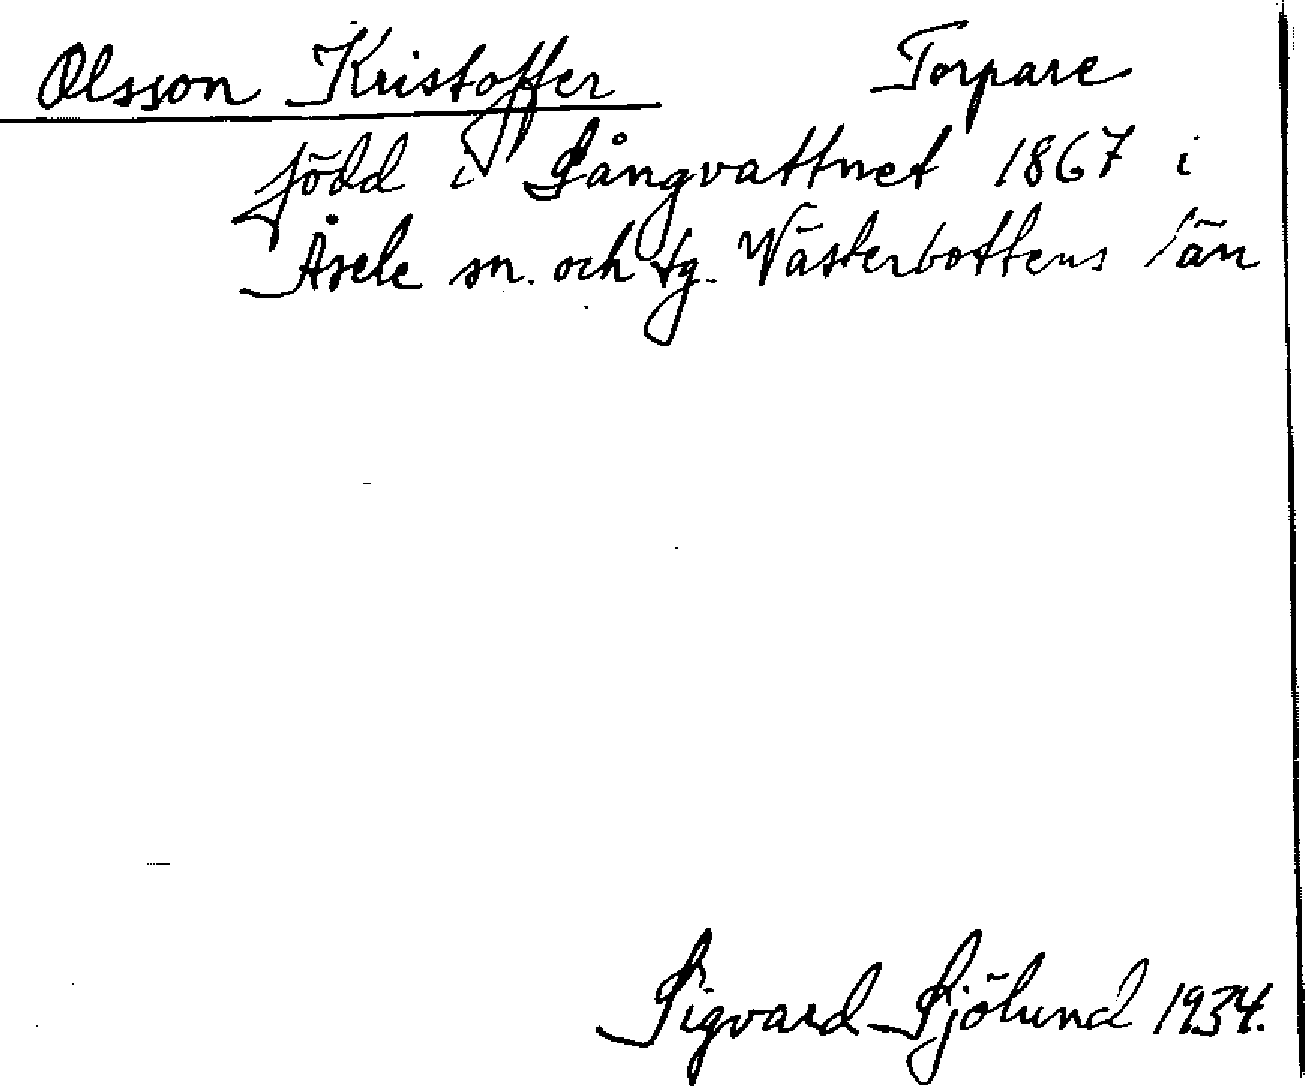 Olsson Kristoffer Torpare
född i Långvattnet 1867 i
Åsele sn. och tg. Västerbottens län
Sigvard Sjölund 1934.